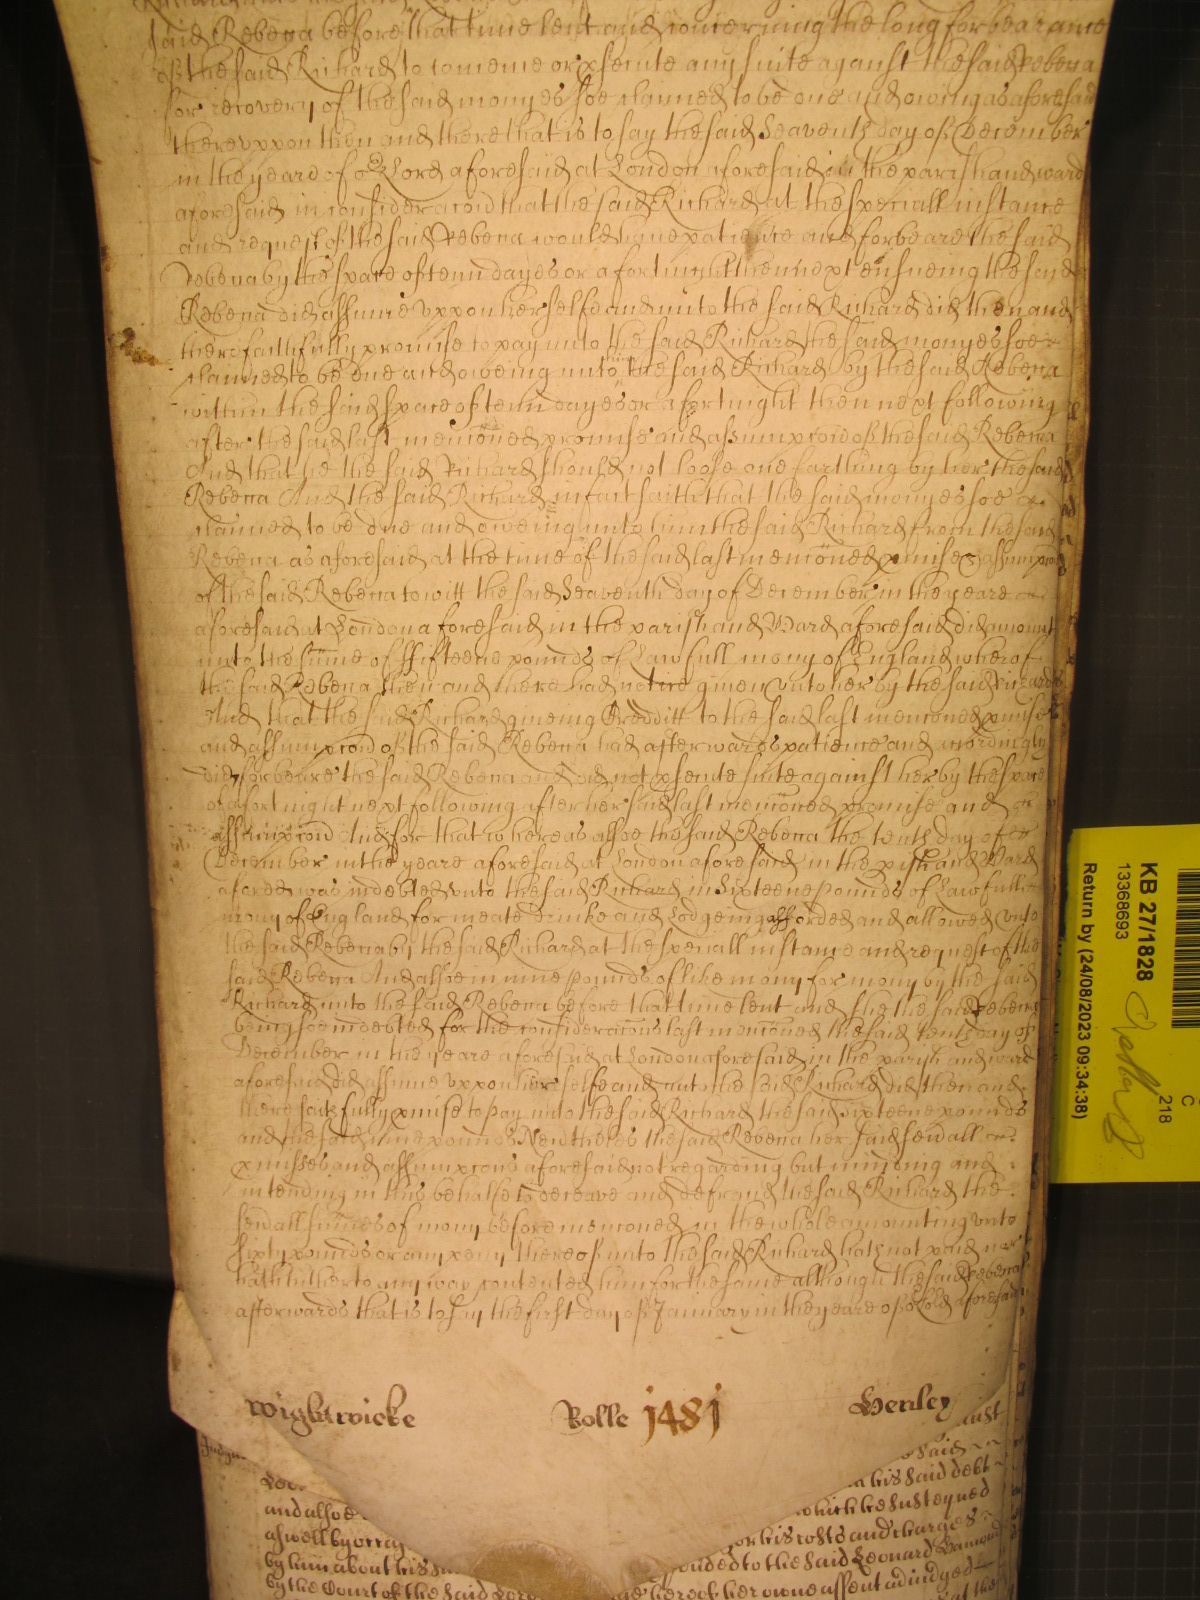 said Rebecca before that time lent and concerning the long forbearance
of the said Richard to comence or psecute any suite against the said Rebecca
for recovery of the said monyes soe claymed to be due and owing as aforesaid
thereuppon then and there that is to say the said Seaventh day of December
in the yeare of or Lord aforesaid at London aforesaid in the parish and ward
aforesaid in consideracoid that he the said Richard at the speciall instance
and request of the said Rebecca would have patience and forbeare the said
Rebecca by the space of tenn dayes or a fortnight then next ensueing the said
Rebecca did assume uppon her selfe and unto the said Richard did then and
there faithfully promise to pay unto the said Richard the said monyes soe
claymed to be due and oweing unto the said Richard by the said Rebecca
within the said space of tenn dayes or a fortnight then next following
after the said last menconed promise and assumpcoid of the said Rebecca
And that he the said Richard should not loose one farthing by her the said
Rebecca And the said Richard in fact saith that the said monyes soe
claymed to be due and oweing unto him the said Richard from the said
Rebecca as aforesaid at the time of the said last menconed pmise & assumpcoid
of the said Rebecca to witt the said Seaventh day of December in the yeare
aforesaid at London aforesaid in the parish and Ward aforesaid did amount
unto the summe of ffifteene pounds of Lawfull mony of England wherof
the said Rebecca then and there had notice given unto her by the said Richard
And that the said Richard giveing Creditt to the said last menconed pmise
and assumpcoid of the said Rebecca had afterwards patience and accordingly
did forbeare the said Rebecca and did not psecute suite against her by the space
of a fortnight next following after her said last menconed promise and
assumpcoid And for that whereas allsoe the said Rebecca the tenth day of
December in the yeare aforesaid at London aforesaid in the pish and Ward
aforesd was indebted unto the said Richard in Sixteene pounds of Lawfull
mony of England for meate drinke and Lodgeing afforded and allowed unto
the said Rebecca by the said Richard at the speciall instance and request of the
said Rebecca And allsoe in nine pounds of like mony for mony by the said
Richard unto the said Rebecca before that time lent and she the said Rebecca
being soe indebted for the consideracons last menconed the said tenth day of
December in the yeare aforesaid at London aforesaid in the parish and ward
aforesaid did assume uppon her selfe and unto the said Richard did then and
there faithfully pmise to pay unto the said Richard the said sixteene pounds
and the said nine pounds Neverthelesse the said Rebecca her said severall
pmisses and assumpcons aforesaid not regarding but minding and
intending in this behalfe to deceave and defraud the said Richard the
severall summes of mony before menconed in the whole amounting unto
sixty pounds or any peny thereof unto the said Richard hath not paid nor
hath hitherto any way contented him for the same although the said Rebecca
afterwards that is to say the first day of January in the yeare of or Lord aforesaid
Wightwicke Rolle 1481 Henley
said
his said debt
and alsoe which he susteyned
aswell by occasion for his costs and charges
by him about his suite to the said Leonard
by the Court of the said Lord hereof her owne assent adjudged
KB 27/1828
13368693
218
C
Return by (24/08/2023 09:34:38)